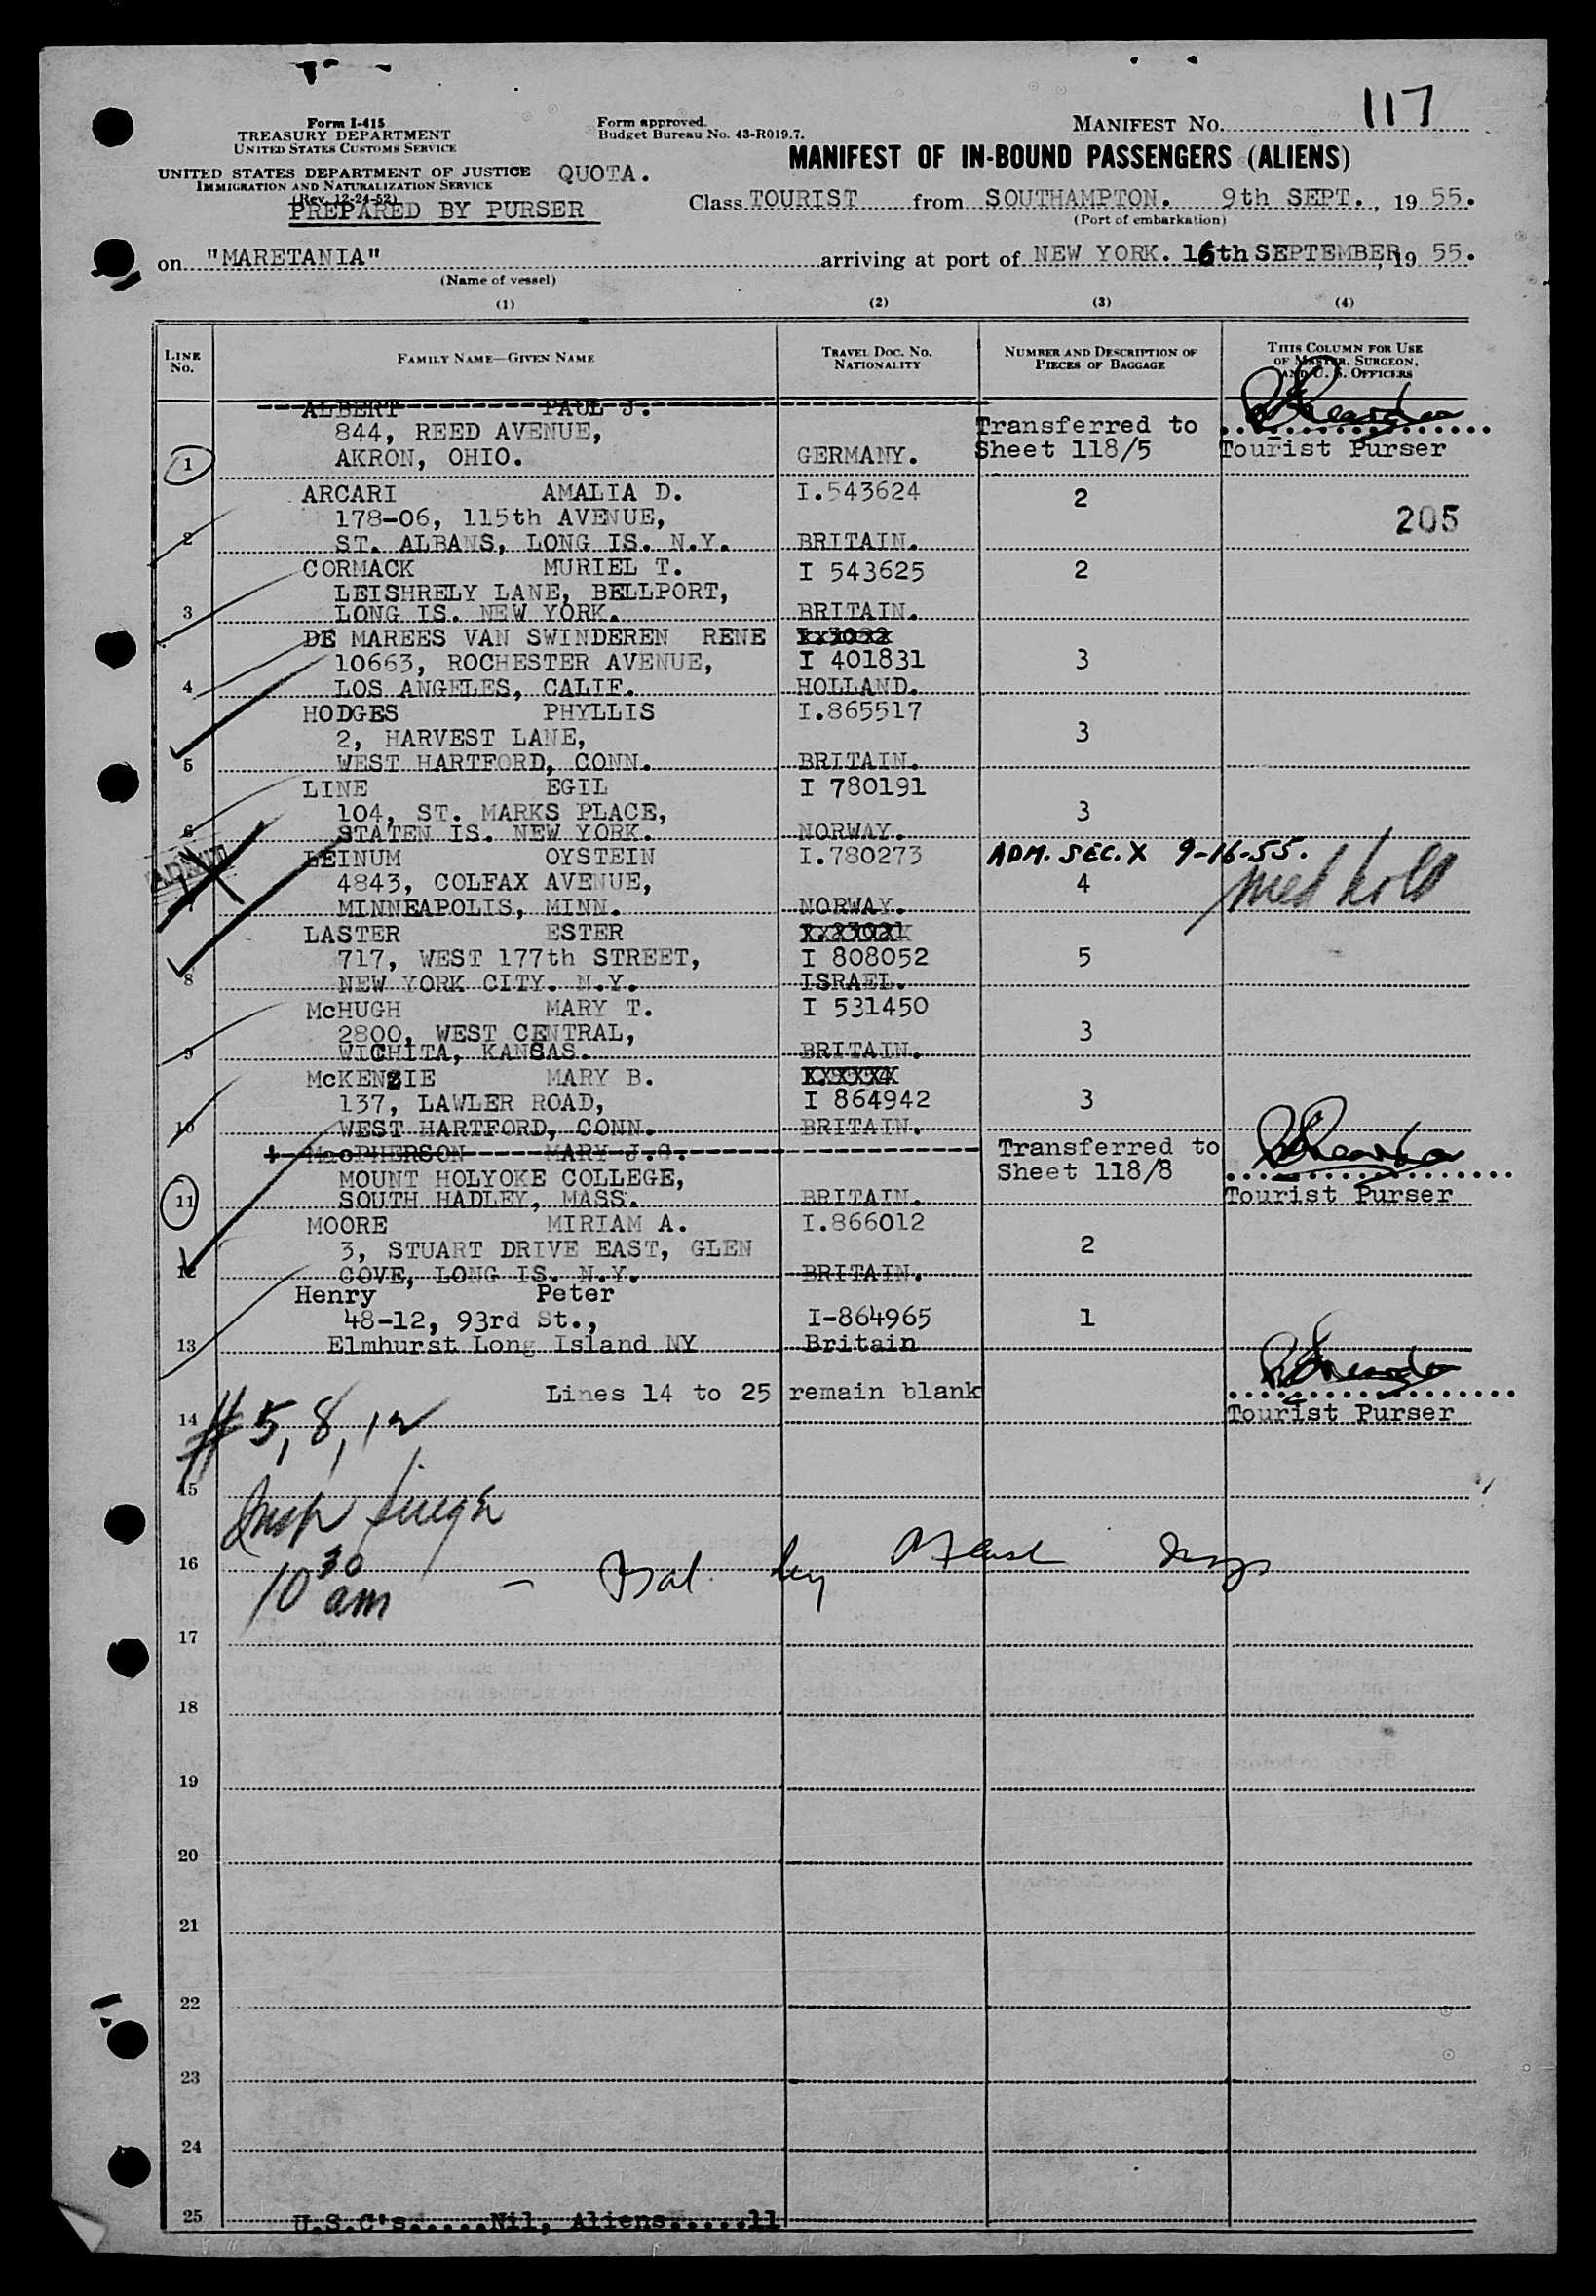 117
Form I-415
TREASURY DEPARTMENT
UNITED STATES CUSTOMS SERVICE
Form approved.
Budget Bureau No. 43-R019.7.
MANIFEST NO.
MANIFEST OF IN-BOUND PASSENGERS (ALIENS)
UNITED STATES DEPARTMENT OF JUSTICE
IMMIGRATION AND NATURALIZATION SERVICE
(Rev. 12-24-52)
QUOTA.
PREPARED BY PURSER
Class TOURIST from SOUTHAMPTON. 9th SEPT., 19 55.
(Port of embarkation)
on "MARETANIA" arriving at port of NEW YORK. 16th SEPTEMBER, 19 55.
(Name of vessel)
(1) (2) (3) (4)
LINE NO.
FAMILY NAME—GIVEN NAME
TRAVEL DOC. NO. NATIONALITY
NUMBER AND DESCRIPTION OF PIECES OF BAGGAGE
THIS COLUMN FOR USE OF MASTER, SURGEON, AND U. S. OFFICERS
ALBERT PAUL J.
844, REED AVENUE, Transferred to
1 AKRON, OHIO. GERMANY. Sheet 118/5 Tourist Purser
ARCARI AMALIA D. I.543624 2
178-06, 115th AVENUE, 205
2 ST. ALBANS, LONG IS. N.Y. BRITAIN.
CORMACK MURIEL T. I 543625 2
LEISHRELY LANE, BELLPORT,
3 LONG IS. NEW YORK. BRITAIN.
DE MAREES VAN SWINDEREN RENE
10663, ROCHESTER AVENUE, I 401831 3
4 LOS ANGELES, CALIF. HOLLAND.
HODGES PHYLLIS I.865517
2, HARVEST LANE, 3
5 WEST HARTFORD, CONN. BRITAIN.
LINE EGIL I 780191
104, ST. MARKS PLACE, 3
6 STATEN IS. NEW YORK. NORWAY.
LEINUM OYSTEIN I.780273 ADM. SEC. X 9-16-55.
ADMIT 4843, COLFAX AVENUE, 4 med hold
7 MINNEAPOLIS, MINN. NORWAY.
LASTER ESTER
717, WEST 177th STREET, I 808052 5
8 NEW YORK CITY. N.Y. ISRAEL.
McHUGH MARY T. I 531450
2800, WEST CENTRAL, 3
9 WICHITA, KANSAS. BRITAIN.
McKENZIE MARY B.
137, LAWLER ROAD, I 864942 3
10 WEST HARTFORD, CONN. BRITAIN.
MacPHERSON MARY J.G. Transferred to
MOUNT HOLYOKE COLLEGE, Sheet 118/8
11 SOUTH HADLEY, MASS. BRITAIN. Tourist Purser
MOORE MIRIAM A. I.866012
3, STUART DRIVE EAST, GLEN 2
12 COVE, LONG IS. N.Y. BRITAIN.
Henry Peter
48-12, 93rd St., I-864965 1
13 Elmhurst Long Island NY Britain
Lines 14 to 25 remain blank
14 Tourist Purser
# 5, 8, 12
15
Insp
16
10 30 am
17
18
19
20
21
22
23
24
25 U.S.C's.....Nil, Aliens.....11